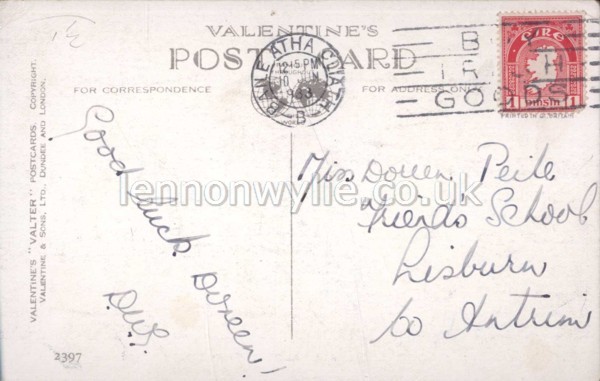 VALENTINE'S
POST CARD
FOR CORRESPONDENCE
FOR ADDRESS ONLY
BAILE ÁTHA CLIATH
12 15 PM
10
B
B
IRISH
GOODS
EIRE
1 PINGIN 1
PRINTED IN G. BRITAIN
VALENTINE'S "VALTER" POSTCARDS. COPYRIGHT.
VALENTINE & SONS, LTD., DUNDEE AND LONDON.
Good luck Doreen!
Miss Doreen Peile
Friends' School
Lisburn
Co Antrim
lennonwylie.co.uk
2397